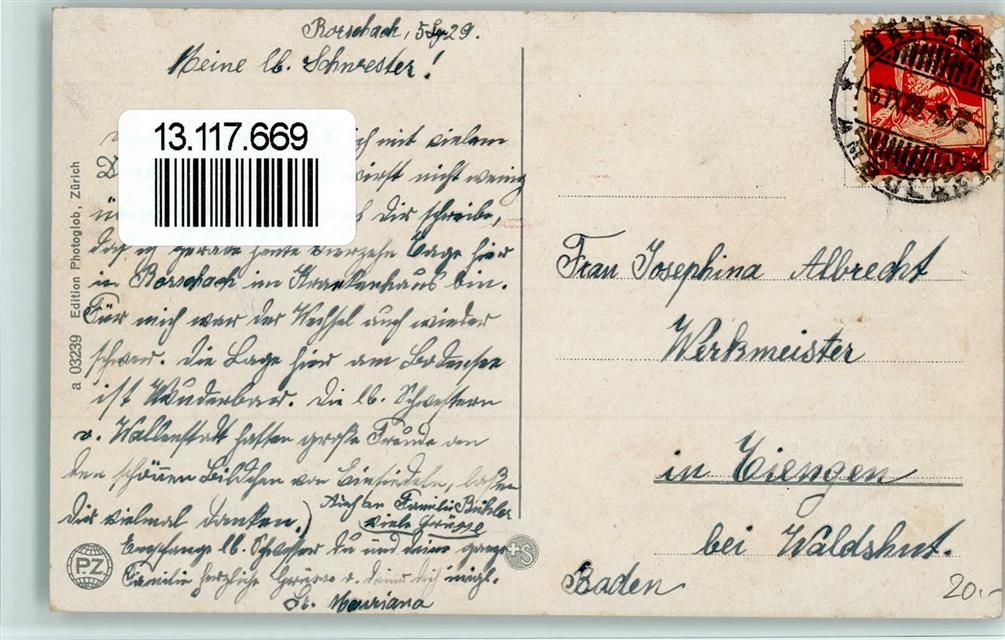 Rorschach, 5 Sp. 29.
Meine lb. Schwester!
13.117.669
ich mit vielem
wirst nicht wenig
Dir schreibe,
daß ich gerade heute vierzehn Tage hier
in Rorschach im Krankenhaus bin.
Für mich war der Wechsel auch wieder
schwer. Die Lage hier am Bodensee
ist Wunderbar. Die lb. Schwestern
v. Wallenstatt hatten große Freude an
den schönen Bildchen von Einsiedeln, lassen
Dir vielmal danken.
Auch an Familie Bühler
viele Grüsse
Empfange lb. Schwester du und deine ganze
Familie herzliche Grüsse v. deiner dich
Sr. Mauriana
a 03239 Edition Photoglob, Zürich
PZ
+S
Frau Josephina Albrecht
Werkmeister
in Tiengen
bei Waldshut.
Baden
20.-